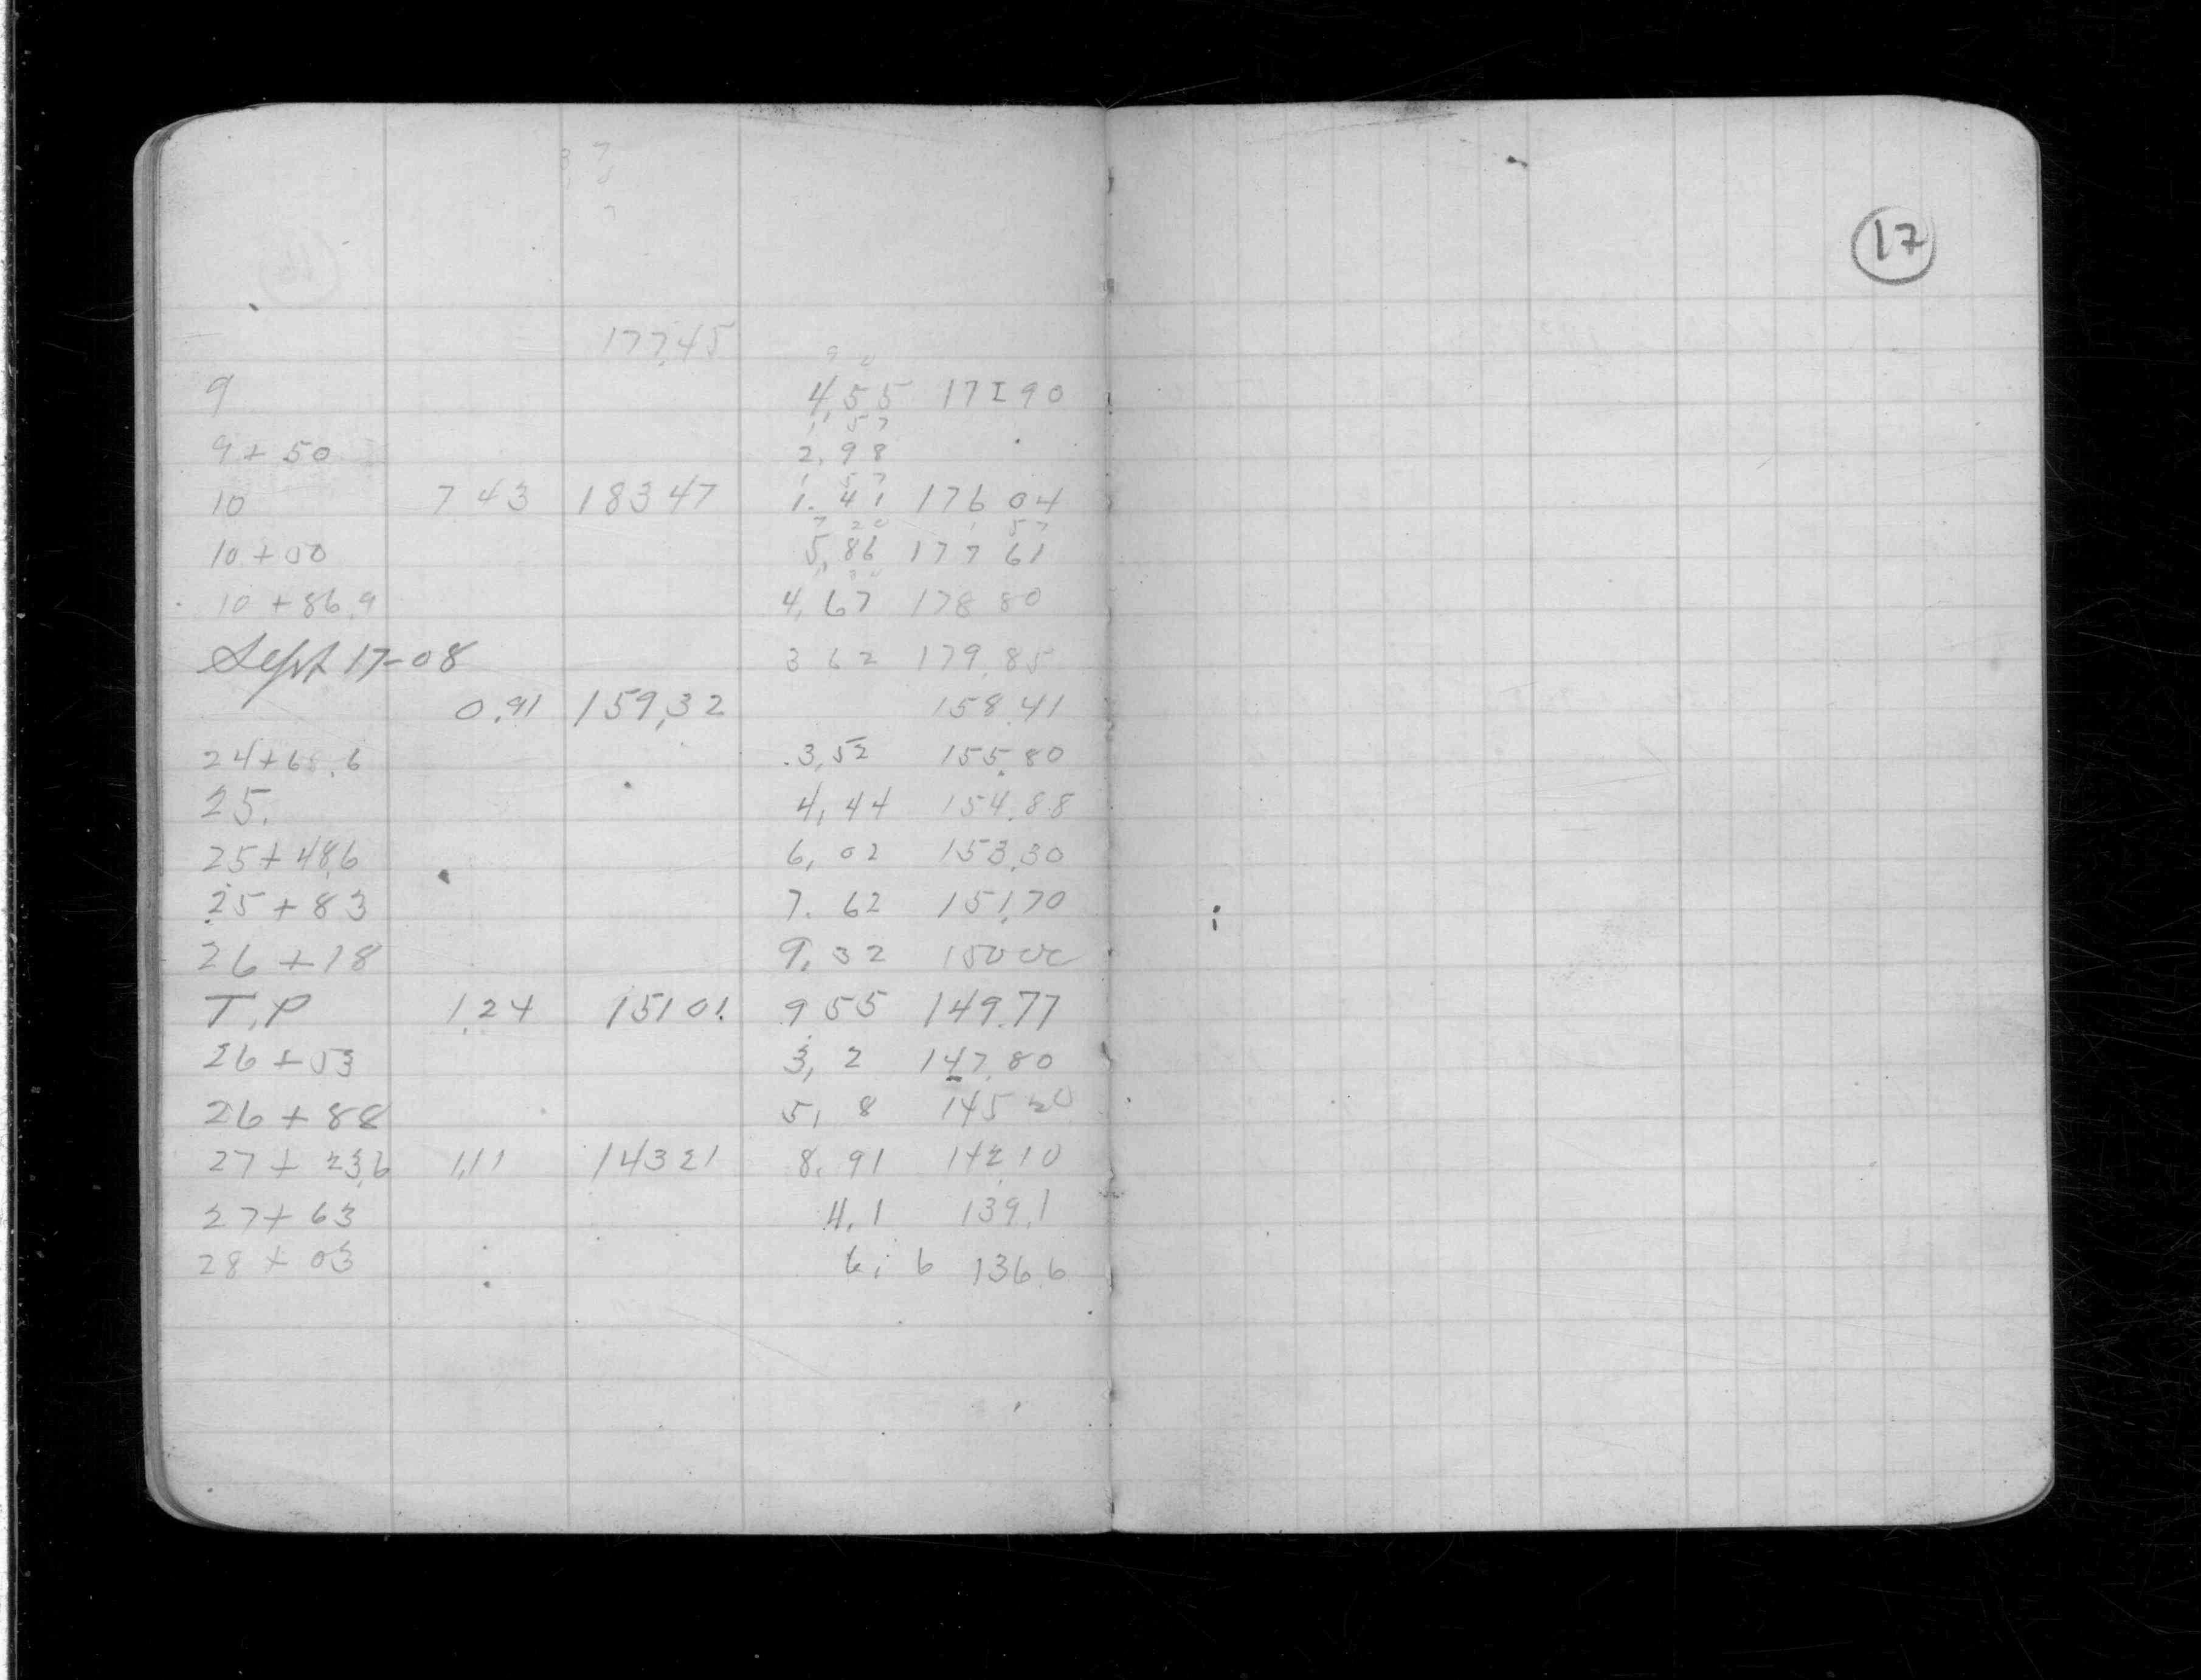 17
177.45
9 4,55 17290
1,57
9+50 2,98
1 57
10 743 18347 1.41 176 04
1 57
10+00 5,86 177 61
10+86.9 4,67 178 80
Sept 17-08 3 62 179.85
0.91 159,32 158.41
24+65.6 3,52 155.80
25. 4,44 154.88
25+48,6 6,02 153.30
25+83 7.62 151,70
26+18 9,32 15000
T.P 1.24 15101 9 55 149.77
26+53 3,2 147.80
26+88 5,8 145 20
27+23,6 1,11 14321 8.91 142,10
27+63 4.1 139.1
28+03 6,6 136.6